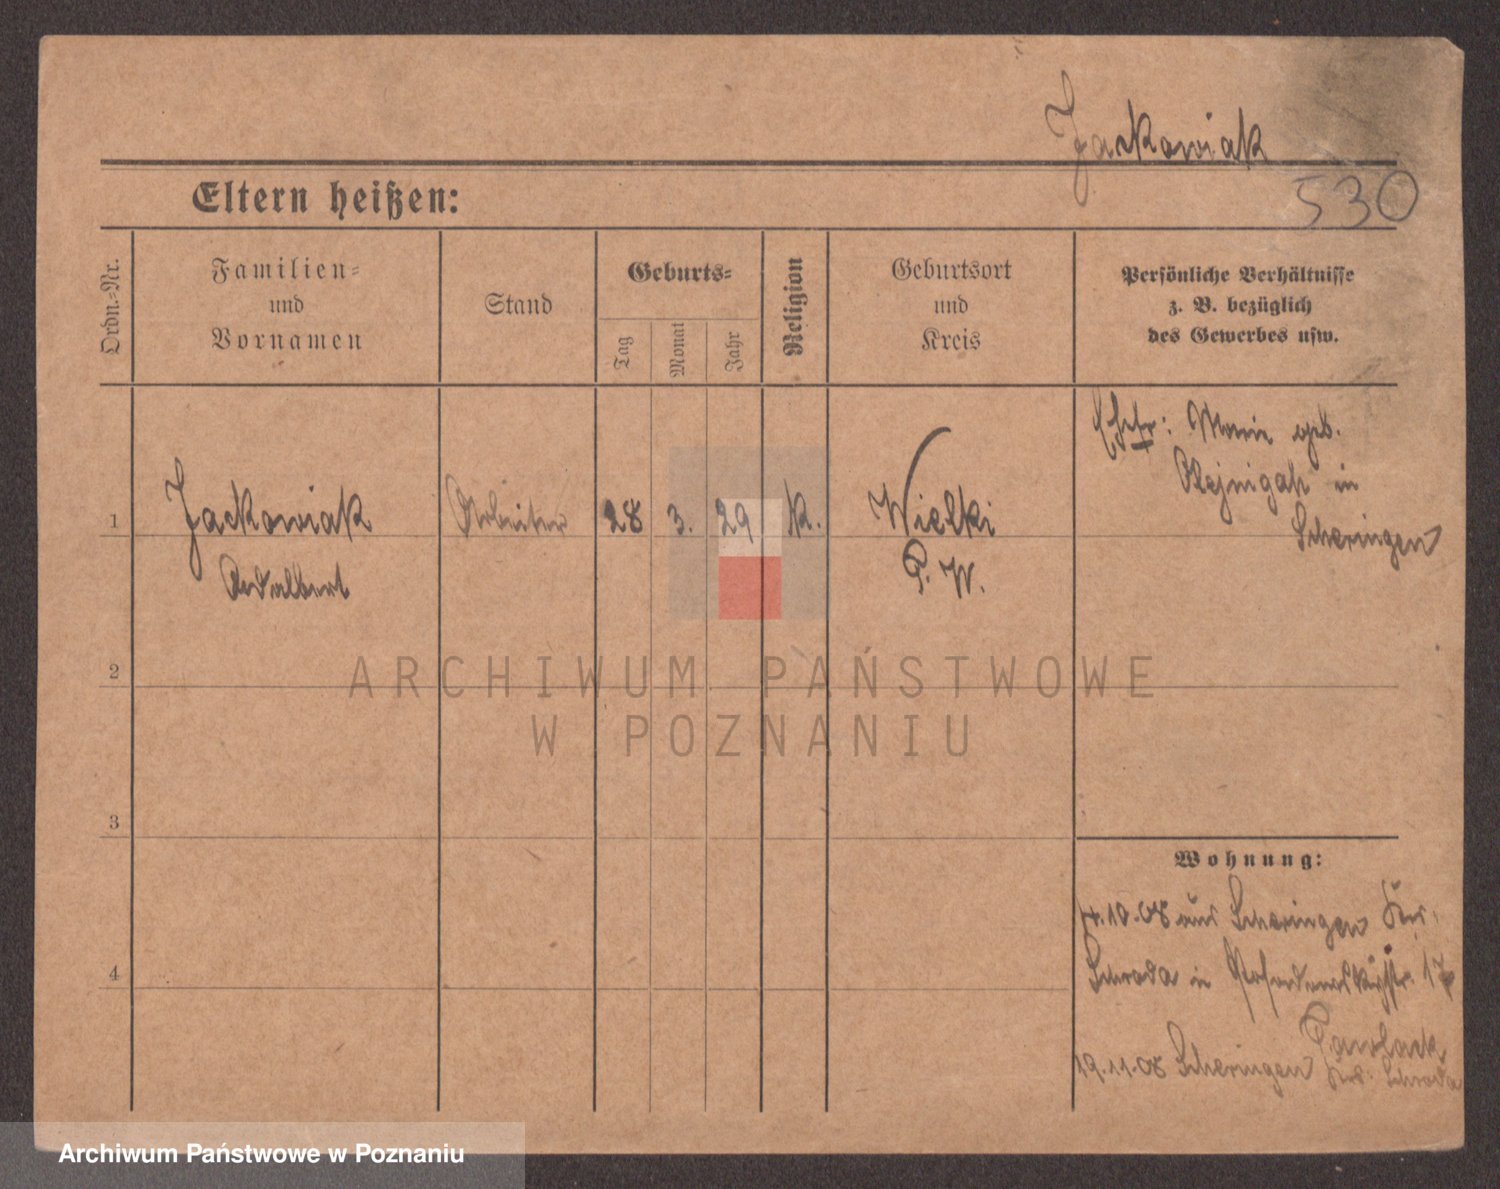 Jackowiak
Eltern heißen:
530
Ordn.-Nr.
Familien-
und
Vornamen
Stand
Geburts-
Tag
Monat
Jahr
Religion
Geburtsort
und
Kreis
Persönliche Verhältnisse
z. B. bezüglich
des Gewerbes usw.
1
Jackowiak
Adalbert
Arbeiter
28
3.
29
k.
Wielki
P. W.
Ehefr: Marie geb.
in
Scheringen
2
ARCHIWUM PAŃSTWOWE
W POZNANIU
3
4
Wohnung:
4.10.08 aus Scheringen Krs.
Schroda in 17
Pawlack
19.11.08 Scheringen Krs. Schroda
Archiwum Państwowe w Poznaniu